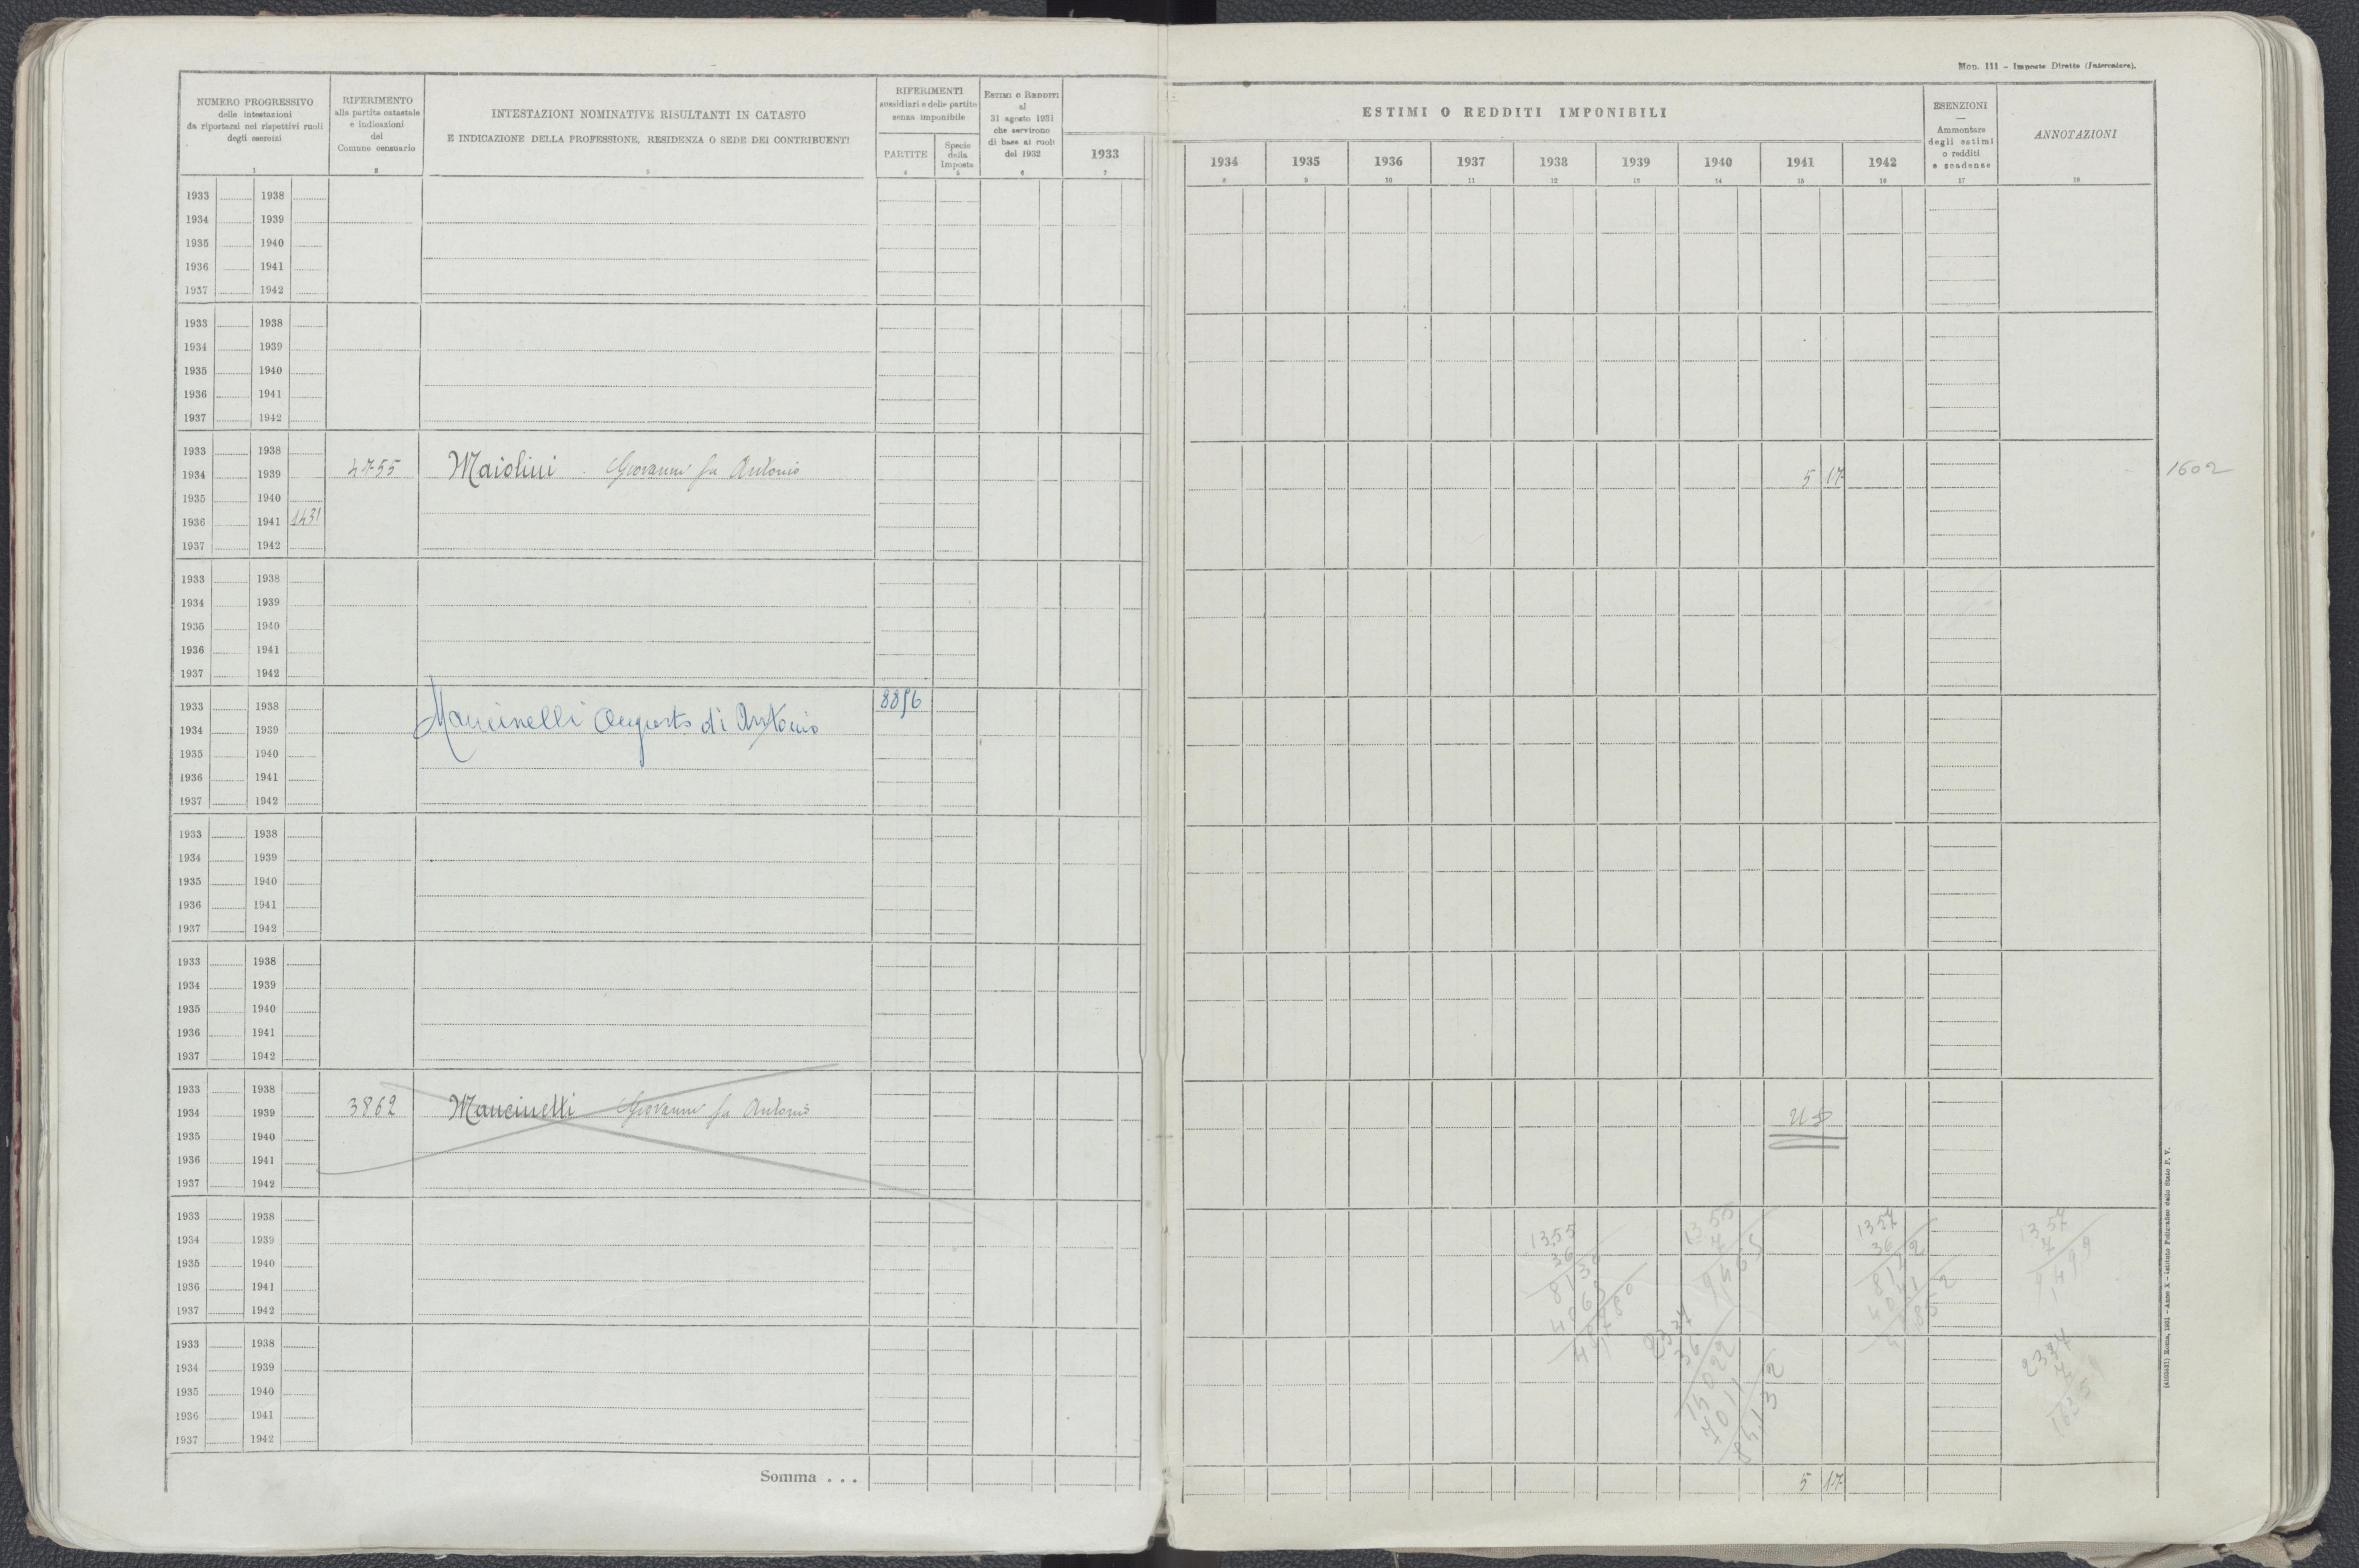 Mod. 111 - Imposte Dirette (Intercalare).
NUMERO PROGRESSIVO
delle intestazioni
da riportarsi nei rispettivi ruoli
degli esercizi
1
RIFERIMENTO
alla partita catastale
e indicazioni
del
Comune censuario
2
INTESTAZIONI NOMINATIVE RISULTANTI IN CATASTO
E INDICAZIONE DELLA PROFESSIONE, RESIDENZA O SEDE DEI CONTRIBUENTI
3
RIFERIMENTI
sussidiari e delle partite
senza imponibile
PARTITE
4
Specie
della
Imposta
5
ESTIMI O REDDITI
al
31 agosto 1931
che servirono
di base ai ruoli
del 1932
6
ESTIMI O REDDITI IMPONIBILI
1933 1934 1935 1936 1937 1938 1939 1940 1941 1942
7 8 9 10 11 12 13 14 15 16
ESENZIONI
—
Ammontare
degli estimi
o redditi
e scadenze
17
ANNOTAZIONI
18
1933 1938
1934 1939
1935 1940
1936 1941
1937 1942
1933 1938
1934 1939
1935 1940
1936 1941
1937 1942
1933 1938
1934 1939 4755 Maiolini Giovanni fu Antonio 5 17 1602
1935 1940
1936 1941 1431
1937 1942
1933 1938
1934 1939
1935 1940
1936 1941
1937 1942
1933 1938 8896
1934 1939 Mancinelli Augusto di Antonio
1935 1940
1936 1941
1937 1942
1933 1938
1934 1939
1935 1940
1936 1941
1937 1942
1933 1938
1934 1939
1935 1940
1936 1941
1937 1942
1933 1938
1934 1939 3862 Mancinelli Giovanni fu Antonio
1935 1940
1936 1941
1937 1942
1933 1938
1934 1939
1935 1940
1936 1941
1937 1942
1933 1938
1934 1939
1935 1940
1936 1941
1937 1942
1355
36
8130
4065
48780
1355
7
9485
1357
36
8142
4071
48852
1357
7
9499
2337
36
14022
7011
84132
2337
7
16359
Somma . . . 5 17
Roma, 1931 - Anno X - Istituto Poligrafico dello Stato P. V.